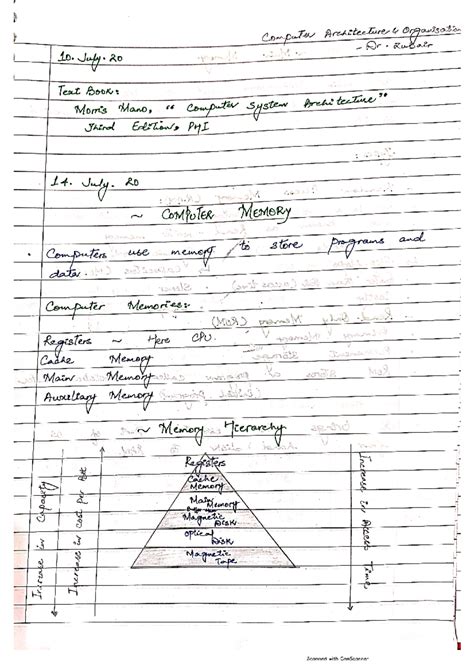 Computer Architecture & Organisation
- Dr. Zubair
10. July. 20
Text Book:
Morris Mano, "Computer System Architecture"
Third Edition, PHI
14. July. 20
~ COMPUTER MEMORY
Computers use memory to store programs and
data.
Computer Memories:
Registers ~ Here CPU.
Cache Memory
Main Memory
Auxillary Memory
~ Memory Hierarchy
Registers
Cache
Memory
Main
Memory
Magnetic
Disk
Optical
Disk
Magnetic
Tape
Increase in Capacity
Increase in Cost Per Bit
Increase in Access Time
Scanned with CamScanner